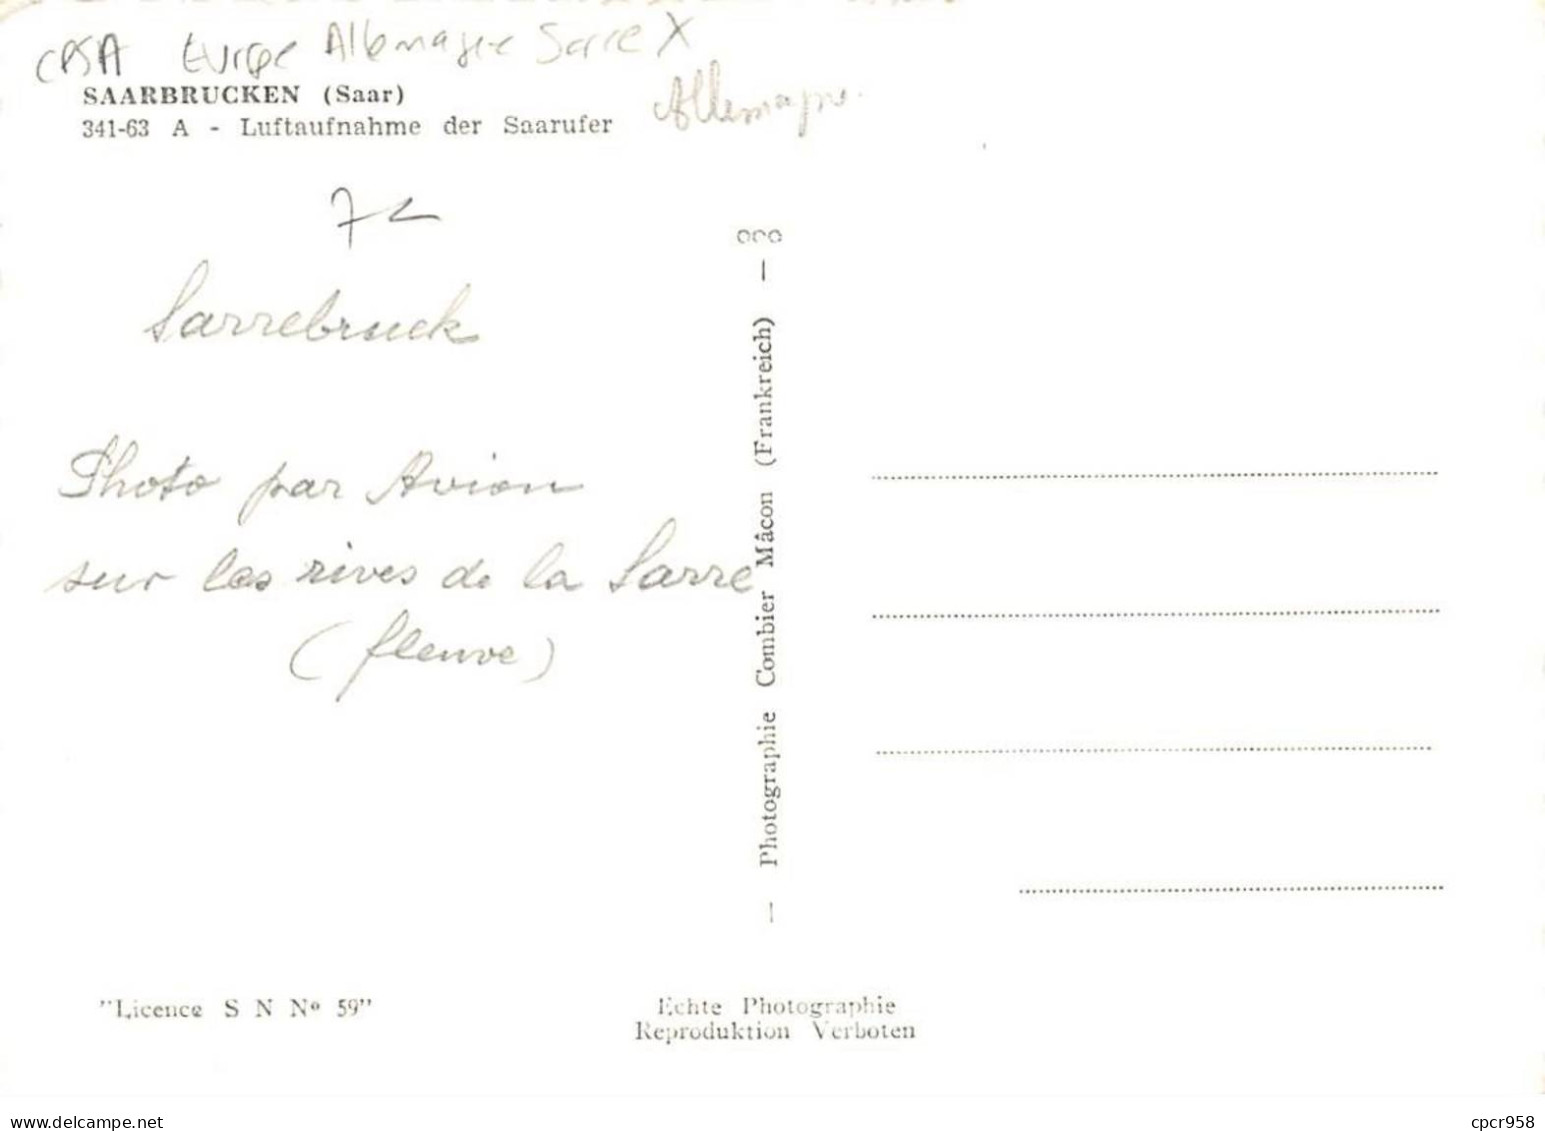 CPSA Europe Allemagne Sarre X
SAARBRUCKEN (Saar)
341-63 A - Luftaufnahme der Saarufer
Allemagne.
Sarrebruck
Photo par Avion
sur les rives de la Sarre
(fleuve)
Photographie Combier Mâcon (Frankreich)
"Licence S N Nº 59"
Echte Photographie
Reproduktion Verboten
www.delcampe.net
cpcr958